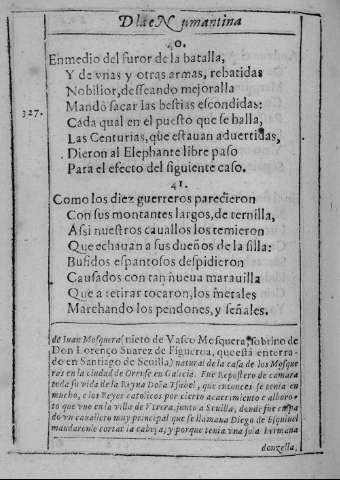 D la eNumantina
40.
Enmedio del furor de la batalla,
Y de vnas y otras armas, rebatidas
Nobilior, desseando mejoralla
Mandò sacar las bestias escondidas:
327.
Cada qual en el puesto que se halla,
Las Centurias, que estauan aduertidas,
Dieron al Elephante libre paso
Para el efecto del siguiente caso.
41.
Como los diez guerreros parecieron
Con sus montantes largos, de ternilla,
Assi nuestros cauallos los temieron
Que echauan a sus dueños de la silla:
Bufidos espantosos despidieron
Causados con tan nueua marauilla
Que a retirar tocaron, los metales
Marchando los pendones, y señales.
de Iuan Mosquera (nieto de Vasco Mosquera, sobrino de
Don Lorenço Suarez de Figueroa, que está enterra-
do en Santiago de Seuilla) natural de la casa de los Mosque
ras en la ciudad de Orense en Galicia. Fue Repostero de camara
toda su vida de la Reyna Doña Isabel, que entonces se tenia en
mucho, e los Reyes catolicos por cierto acaecimiento e alboro-
to que vuo en la villa de Vtrera, junto a Seuilla, donde fue culpa
do vn cauallero muy principal que se llamaua Diego de Esquiuel
mandaronle cortar la cabeça, y porque tenia vna sola hermana
donzella,